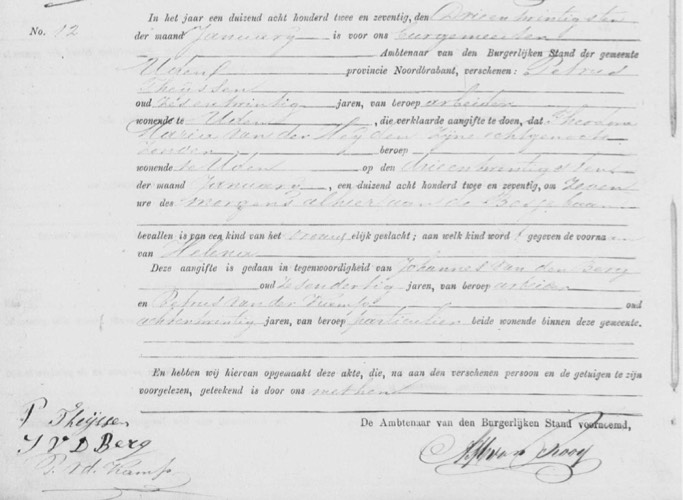 No. 12
In het jaar een duizend acht honderd twee en zeventig, den Drieentwintigsten
der maand Januarij is voor ons burgemeester
Ambtenaar van den Burgerlijken Stand der gemeente
provincie Noordbrabant, verschenen: Petrus
Theijssen
oud zesentwintig jaren, van beroep arbeider
wonende te , die verklaarde aangifte te doen, dat Theodora
Maria van der Heijden zijne echtgenoote
zonder beroep
wonende te op den drieentwintigsten
der maand Januarij, een duizend acht honderd twee en zeventig, om zeven
ure des morgens alhier aan de
bevallen is van een kind van het vrouwelijk geslacht; aan welk kind word gegeven de voorna
van Helena
Deze aangifte is gedaan in tegenwoordigheid van Johannes van den Berg
oud zesendertig jaren, van beroep arbeider
en Petrus van der oud
achtentwintig jaren, van beroep particulier beide wonende binnen deze gemeente.
En hebben wij hiervan opgemaakt deze akte, die, na aan den verschenen persoon en de getuigen te zijn
voorgelezen, geteekend is door ons met hen
De Ambtenaar van den Burgerlijken Stand voornoemd,
P Theijssen
J V D Berg
P. v d. Kamp